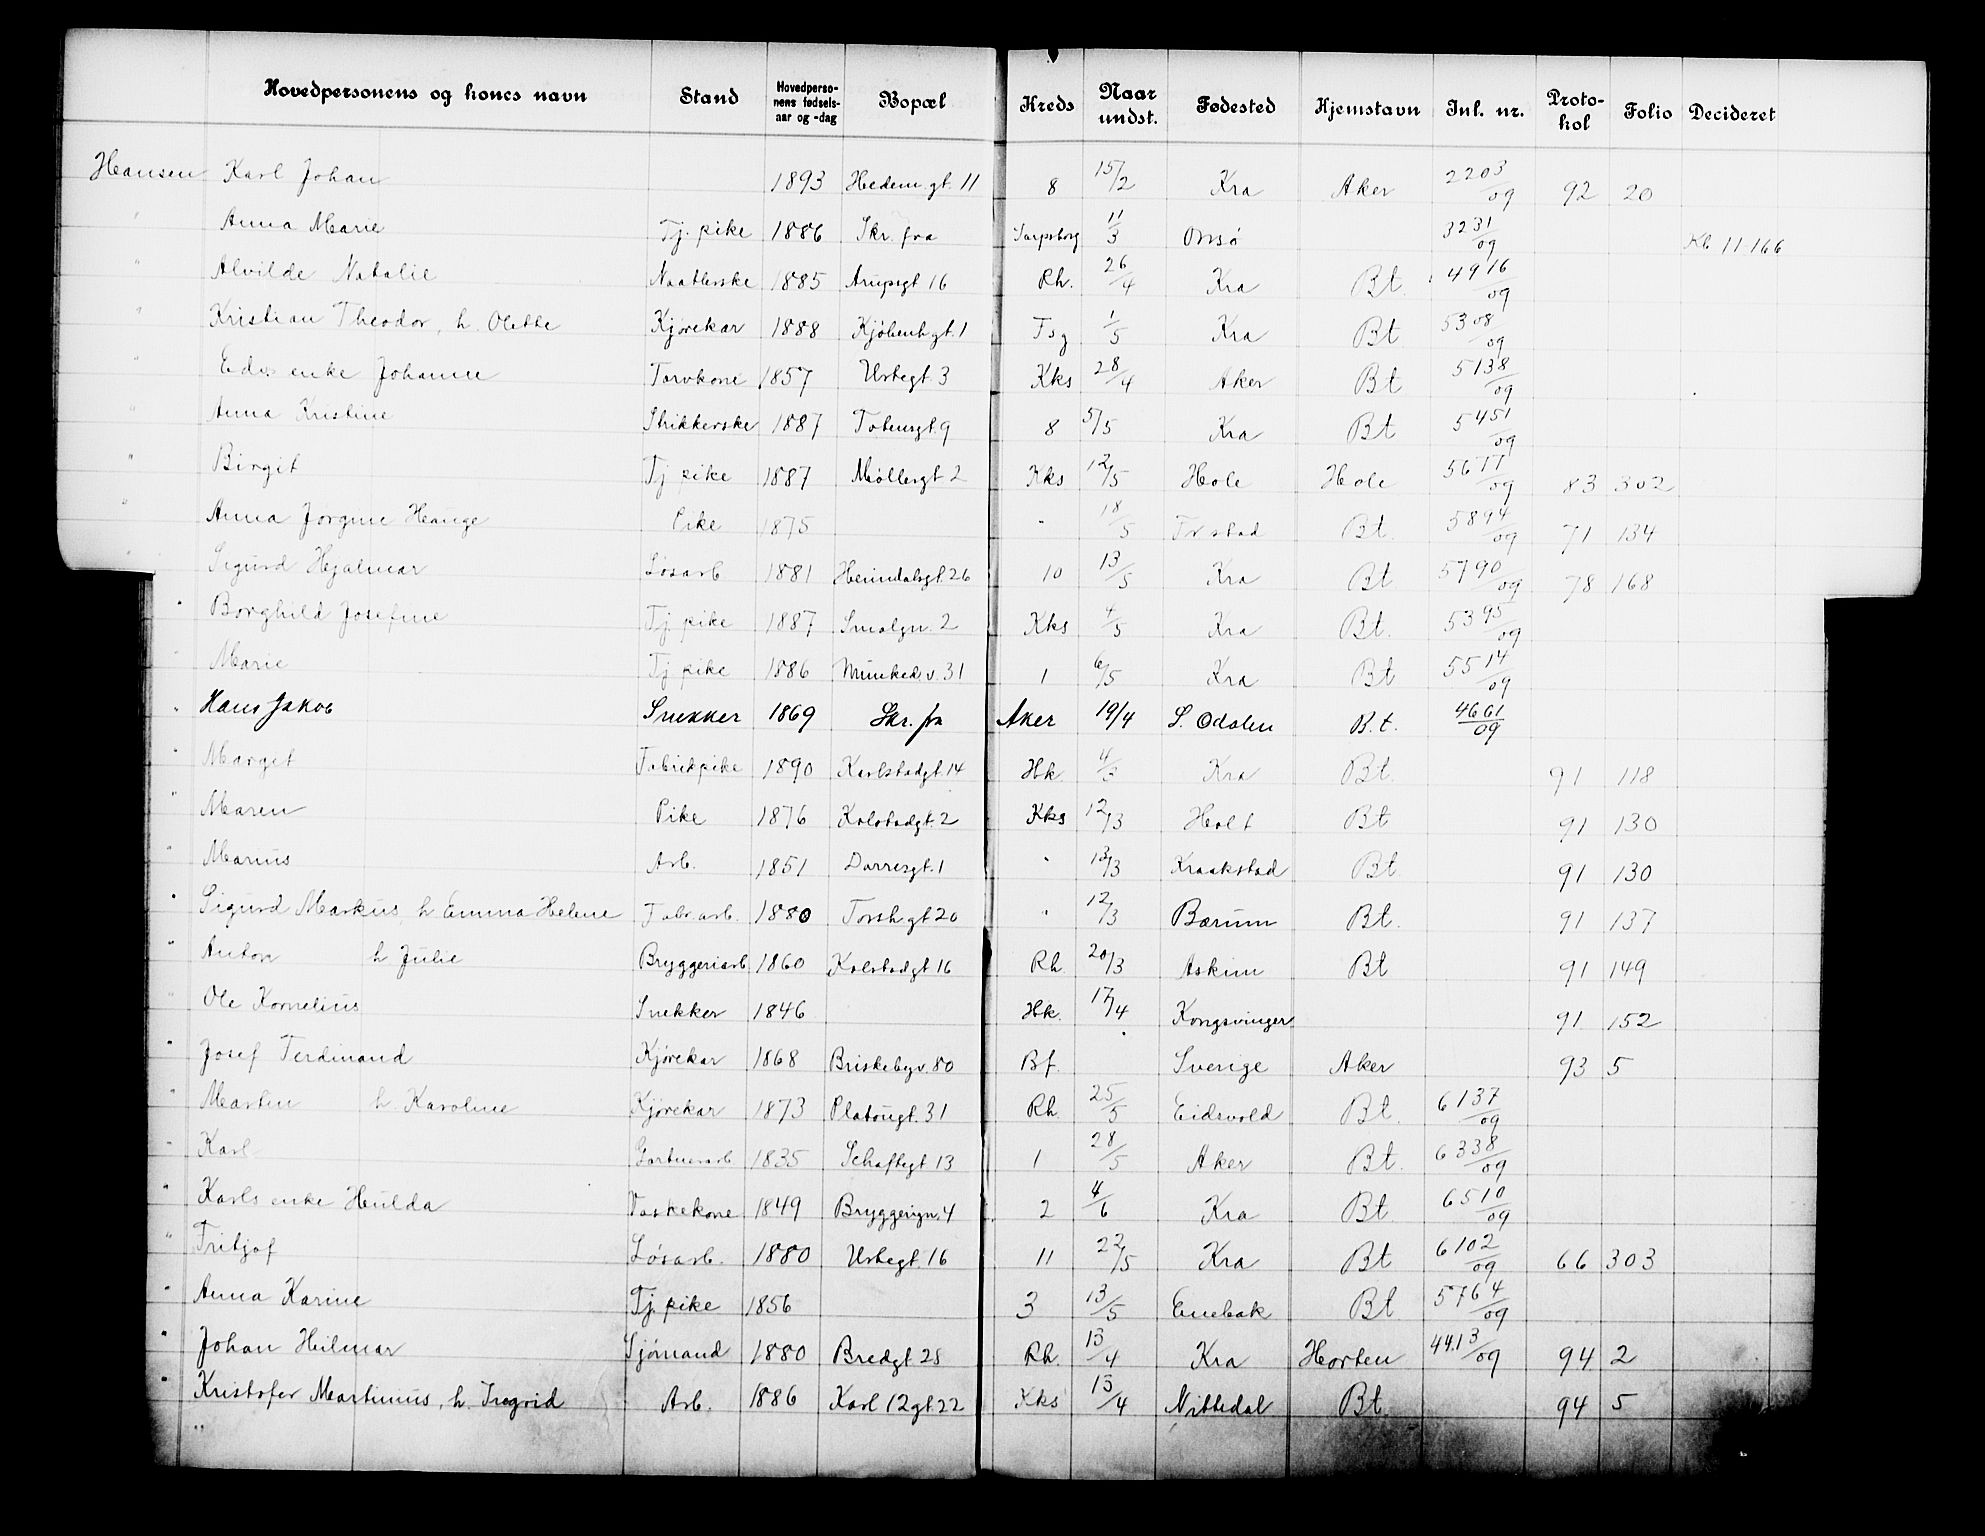 Hovedpersonens og hones navn | Stand | Hovedperso-nens fødsels-aar og -dag | Bopæl | Kreds | Naar undst. | Fødested | Hjemstavn | Inl. nr. | Proto-kol | Folio | Decideret
Hansen Karl Johan | | 1893 | Hedem.gt. 11 | 8 | 15/2 | Kra | Aker | 2203/09 | 92 | 20
" Anna Marie | Tj. pike | 1886 | Skr. fra | Sarpsborg | 11/3 | Onsø | | 3231/09 | | | Kb 11.166
" Alvilde Natalie | Naatlerske | 1885 | Arupsgt 16 | Rh. | 26/4 | Kra | Bt. | 4916/09
" Kristian Theodor, h. Olette | Kjørekar | 1888 | Kjøbenh.gt. 1 | Tsg | 1/5 | Kra | Bt | 5308/09
" Edv.s enke Johanne | Torvkone | 1857 | Urtegt. 3 | Kks | 28/4 | Aker | Bt | 5138/09
" Anna Kristine | Strikkerske | 1887 | Totensgt. 9 | 8 | 5/5 | Kra | Bt | 5451/09
" Birgit | Tj pike | 1887 | Møllergt 2 | Kks | 12/5 | Hole | Hole | 5677/09 | 83 | 302
" Anna Jørgine Hange | Pike | 1875 | | " | 18/5 | | Bt. | 5894/09 | 71 | 134
" Sigurd Hjalmar | Løsarb | 1881 | Heimdalsgt. 26 | 10 | 13/5 | Kra | Bt | 5790/09 | 78 | 168
" Borghild Josefine | Tj pike | 1887 | Smalgn. 2 | Kks | 4/5 | Kra | Bt. | 5395/09
" Marie | Tj pike | 1886 | Munked.v. 31 | 1 | 6/5 | Kra | Bt | 5514/09
" Hans Jakob | Snekker | 1869 | Skr. fra | Aker | 19/4 | S. Odalen | B.t. | 4661/09
" Margit | Fabrikpike | 1890 | Karlstadgt. 14 | Hk. | 4/3 | Kra | Bt. | | 91 | 118
" Maren | Pike | 1876 | Kolstadgt. 2 | Kks | 12/3 | Holt | Bt | | 91 | 130
" Marius | Arb. | 1851 | Darresgt. 1 | " | 13/3 | Kraakstad | Bt. | | 91 | 130
" Sigurd Markus, h Emma Helene | Fabr.arb. | 1880 | Torshgt 20 | " | 12/3 | Bærum | Bt. | | 91 | 137
" Anton h Julie | Bryggeriarb | 1860 | Kolstadgt 16 | Rh | 20/3 | Askim | Bt | | 91 | 149
" Ole Kornelius | Snekker | 1846 | | Hk. | 17/4 | Kongsvinger | | | 91 | 152
" Josef Ferdinand | Kjørekar | 1868 | Briskebyv. 80 | Bf. | | Sverige | Aker | | 93 | 5
" Martin h. Karoline | Kjørekar | 1873 | Platougt. 31 | Rh. | 25/5 | Eidsvold | Bt. | 6137/09
" Karl | Gartnerarb | 1835 | Schaftegt 13 | 1 | 28/5 | Aker | Bt. | 6338/09
" Karls enke Hulda | Vaskekone | 1849 | Bryggerign. 4 | 2 | 4/6 | Kra | Bt | 6510/09
" Fritjof | Løsarb. | 1880 | Urtegt. 16 | 11 | 22/5 | Kra | Bt | 6102/09 | 66 | 303
" Anna Karine | Tj. pike | 1856 | | 3 | 13/5 | Enebak | Bt | 5764/09
" Johan Hilmar | Sjømand | 1880 | Bredgt. 25 | Rh. | 13/4 | Kra | Horten | 4413/09 | 94 | 2
" Kristofer Martinius, h. Ingrid | Arb. | 1886 | Karl 12 gt. 22 | Kks | 13/4 | Nittedal | Bt. | | 94 | 5
"